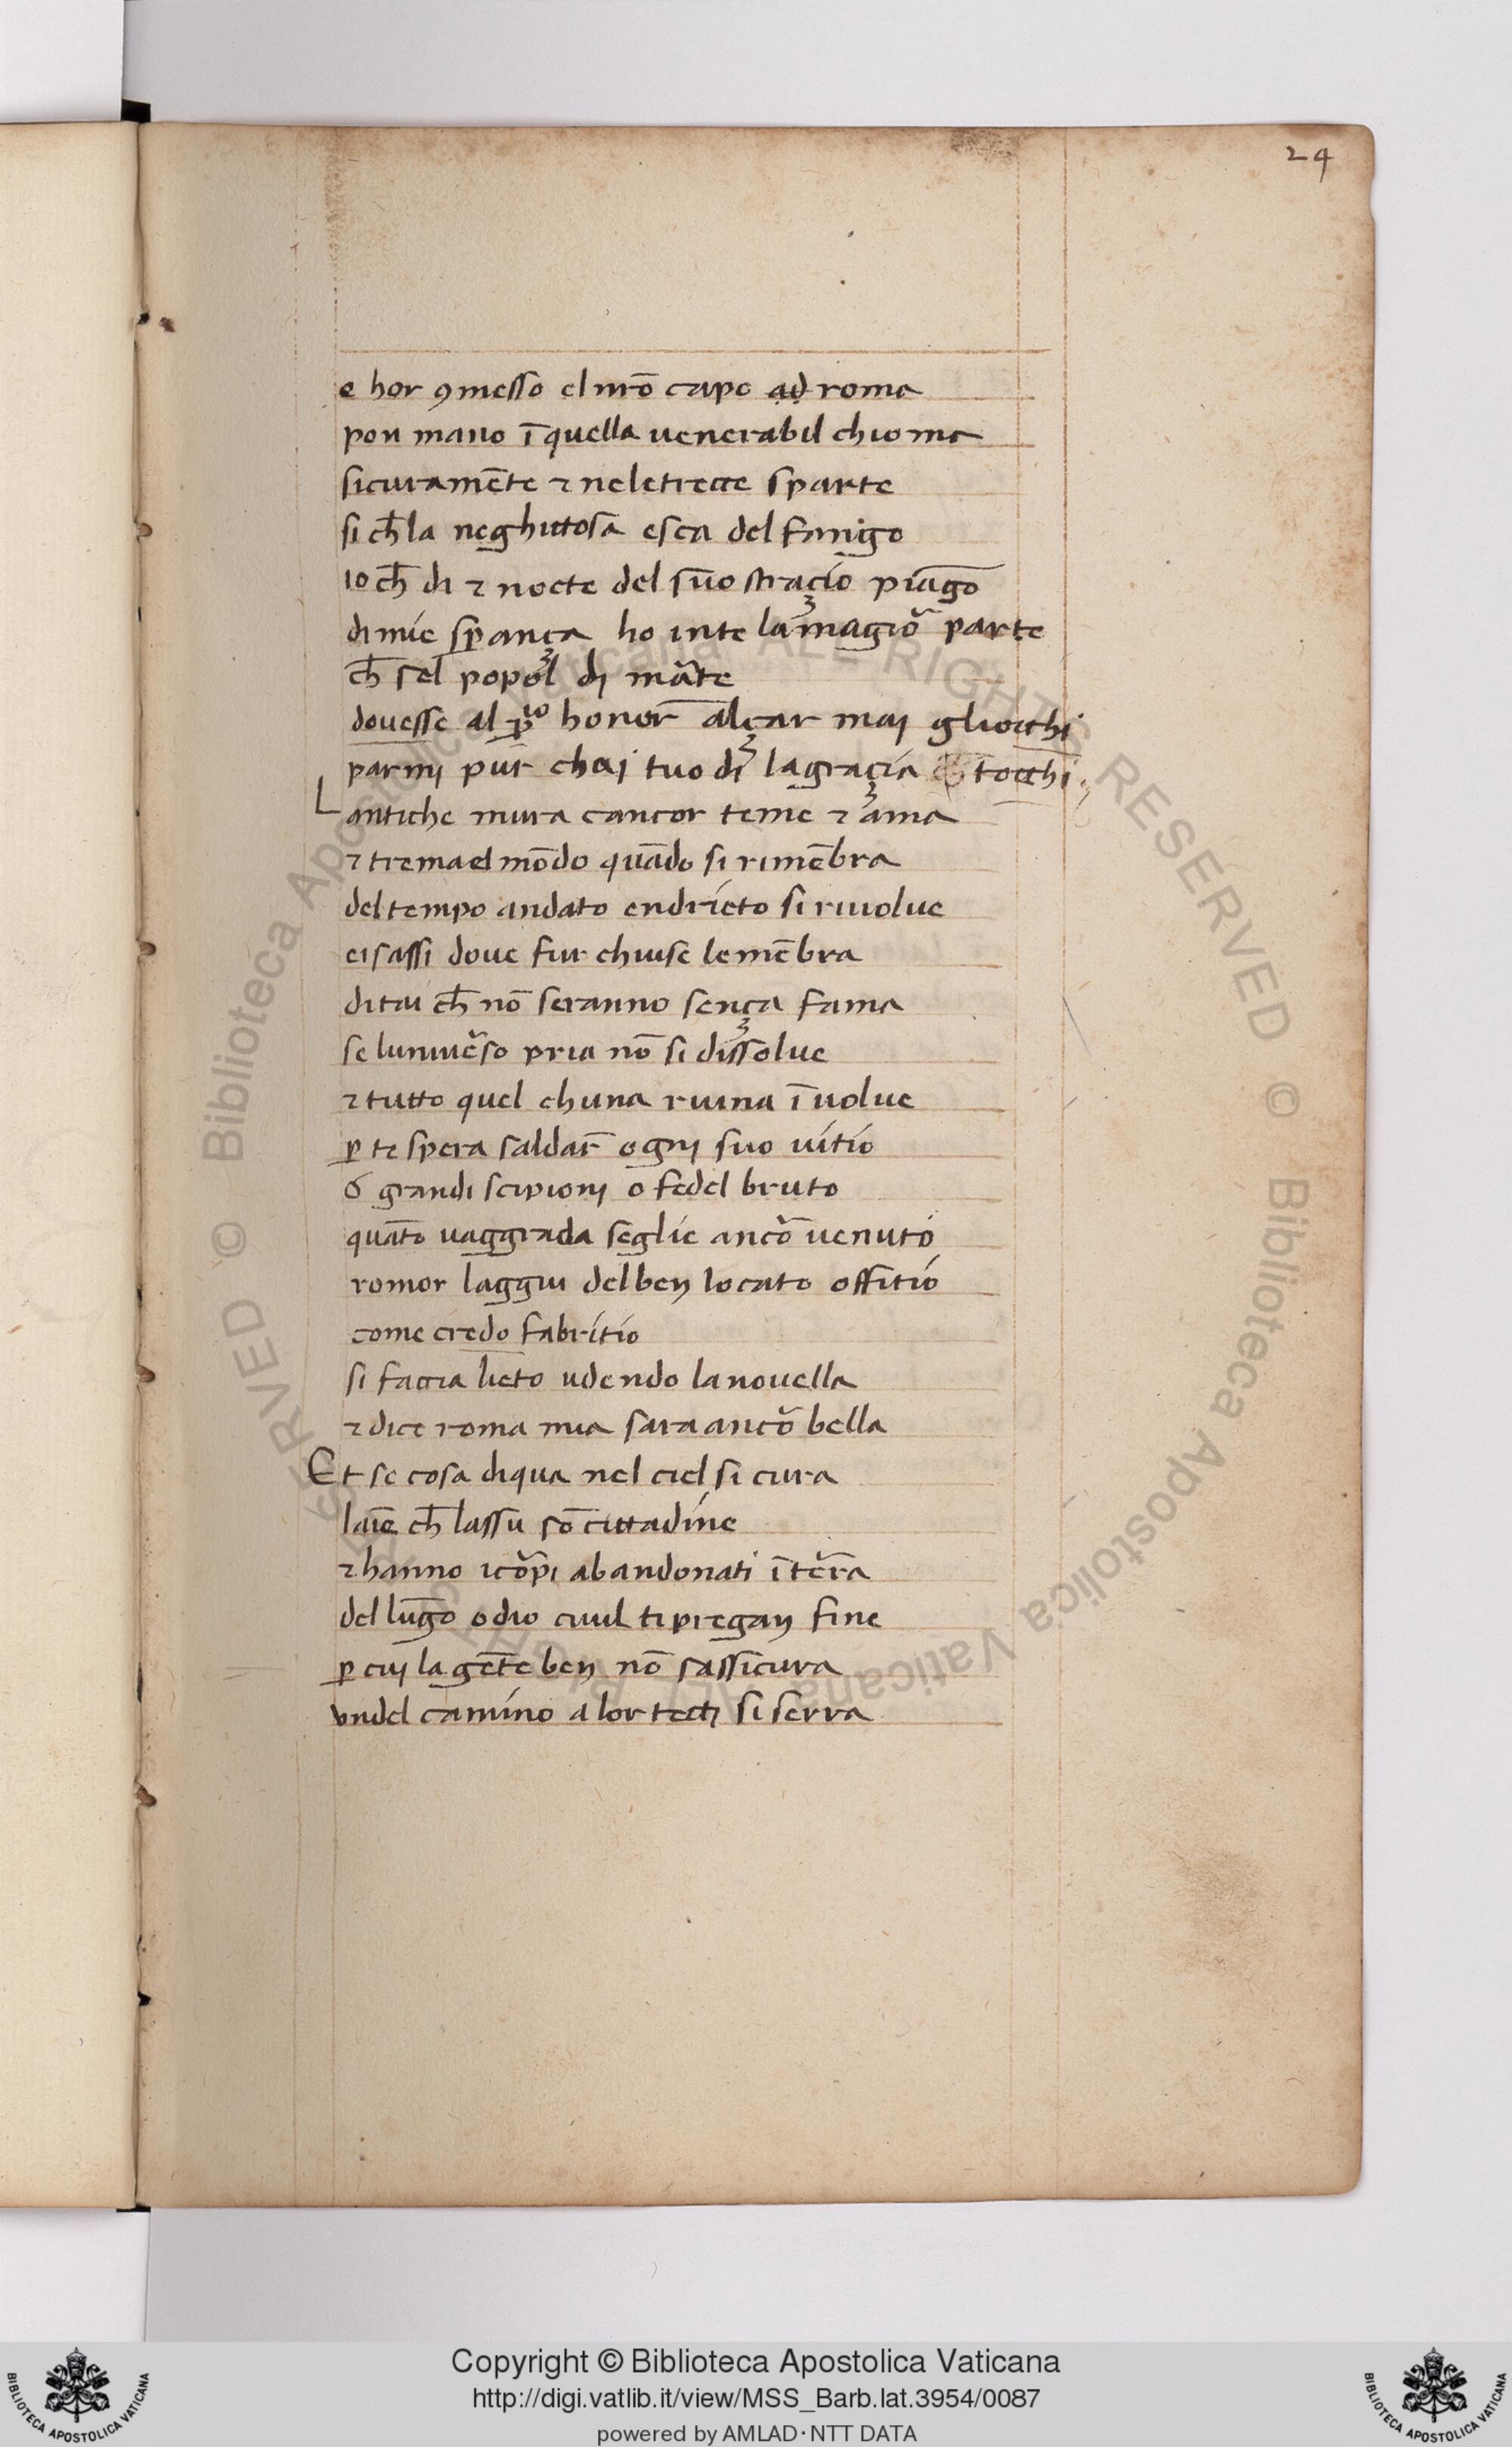 24
e hor ꝯmesso el nr̄o capo ad roma
pon mano ī quella uenerabil chioma
sicuramēte ⁊ neletrecce sparte
si ch̄ la neghittosa esca del fango
io ch̄ di ⁊ nocte del suo stracio piango
di mie sꝑança ho inte la magior parte
ch̄ sel popol di marte
douesse al ꝓprio honor alçar maj gliocchi
parmj pur chaj tuo di la gracia tocchi
Lantiche mura cancor teme ⁊ ama
⁊ trema el mōdo quādo si rimēbra
del tempo andato endrieto si riuolue
ei sassi doue fur chiuse le mēbra
di tai ch̄ nō seranno sença fama
se luniuerso pria nō si dissolue
⁊ tutto quel chuna ruina ī uolue
ꝑ te spera saldar ognj suo uitio
o grandi scipionj o fedel bruto
quāto uaggrada seglie ancor uenuto
romor laggiu del ben locato offitio
come credo fabritio
si faccia lieto udendo la nouella
⁊ dice roma mia sara ancor bella
Et se cosa di qua nel ciel si cura
laīe ch̄ lassu sō cittadine
⁊ hanno icorpi abandonati ī terra
del lungo odio ciuil ti pregan fine
ꝑ cuj la gēte ben nō sassicura
vndel camino a lor tectj si serra
Copyright © Biblioteca Apostolica Vaticana
http://digi.vatlib.it/view/MSS_Barb.lat.3954/0087
powered by AMLAD·NTT DATA
BIBLIOTECA APOSTOLICA VATICANA
BIBLIOTECA APOSTOLICA VATICANA